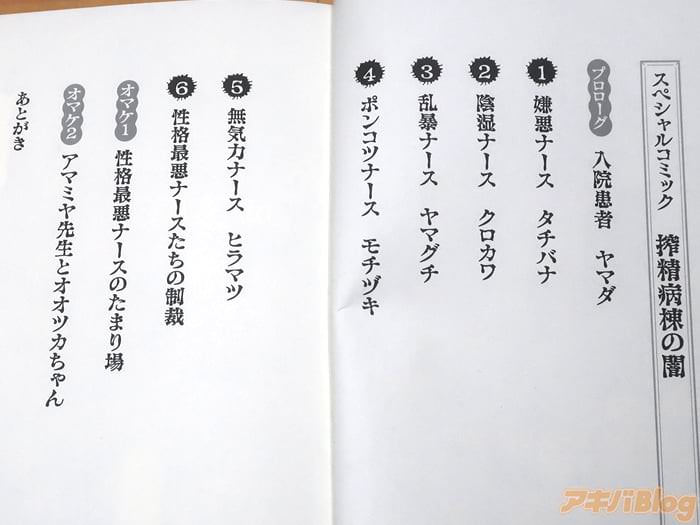 スペシャルコミック 搾精病棟の闇
プロローグ 入院患者 ヤマダ
1 嫌悪ナース タチバナ
2 陰湿ナース クロカワ
3 乱暴ナース ヤマグチ
4 ポンコツナース モチヅキ
5 無気力ナース ヒラマツ
6 性格最悪ナースたちの制裁
オマケ1 性格最悪ナースのたまり場
オマケ2 アマミヤ先生とオオツカちゃん
あとがき
アキバBlog